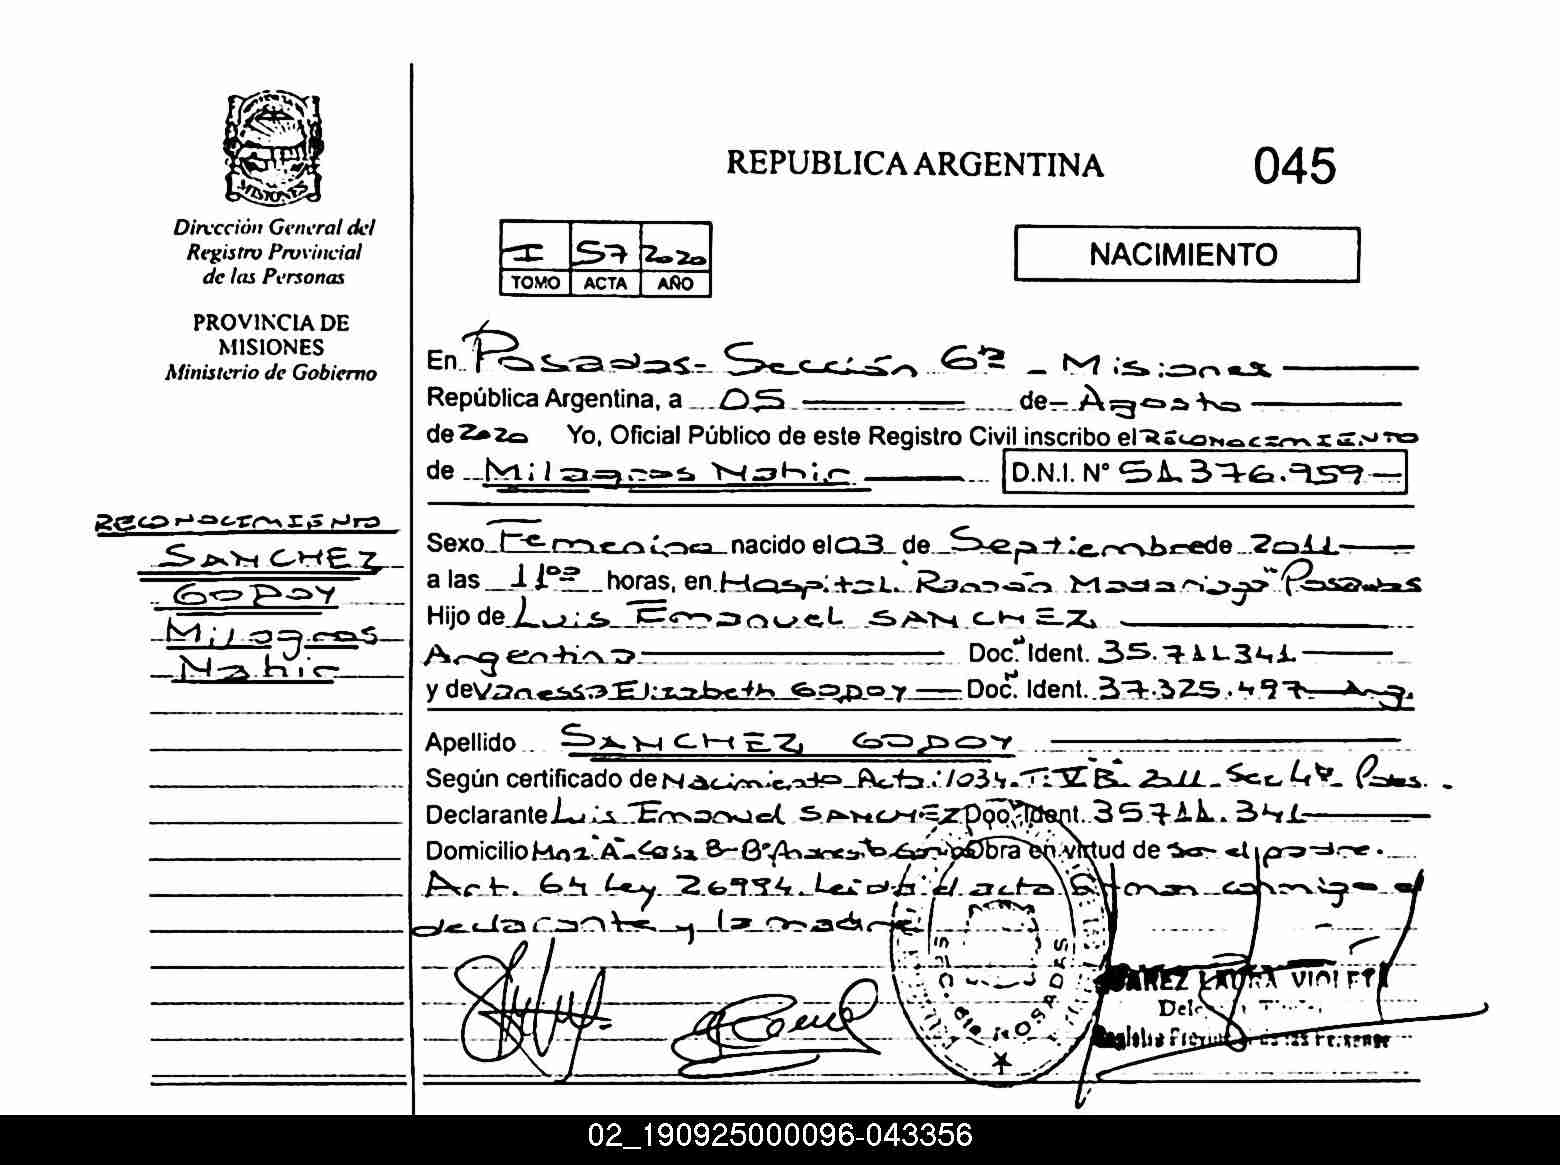 REPUBLICA ARGENTINA 045
MISIONES
Dirección General del
Registro Provincial
de las Personas
PROVINCIA DE
MISIONES
Ministerio de Gobierno
I 57 2020
TOMO ACTA AÑO
NACIMIENTO
En Posadas - Sección 6ta - Misiones
República Argentina, a 05 de Agosto
de 2020 Yo, Oficial Público de este Registro Civil inscribo el RECONOCIMIENTO
de Milagros Nahir D.N.I. N° 51.376.959
RECONOCIMIENTO
SANCHEZ
GODOY
Milagros
Nahir
Sexo Femenino nacido el 03 de Septiembre de 2011
a las 11:00 horas, en Hospital "Ramón Madariaga" Posadas
Hijo de Luis Emanuel SANCHEZ
Argentino Doc. Ident. 35.711.341
y de Vanessa Elizabeth GODOY Doc. Ident. 37.325.497 Arg.
Apellido SANCHEZ GODOY
Según certificado de Nacimiento Acta: 1034. T: V B. 2011 Sec 4ta Pdas.
Declarante Luis Emanuel SANCHEZ Doc. Ident. 35711.341
Domicilio Mnz A - Casa 8 - B° Obra en virtud de ser el padre.
Art. 64 Ley 26994. Leida el acta firman conmigo el
declarante y la madre
SEC. 6ta POSADAS
SUAREZ LAURA VIOLETA
02_190925000096-043356